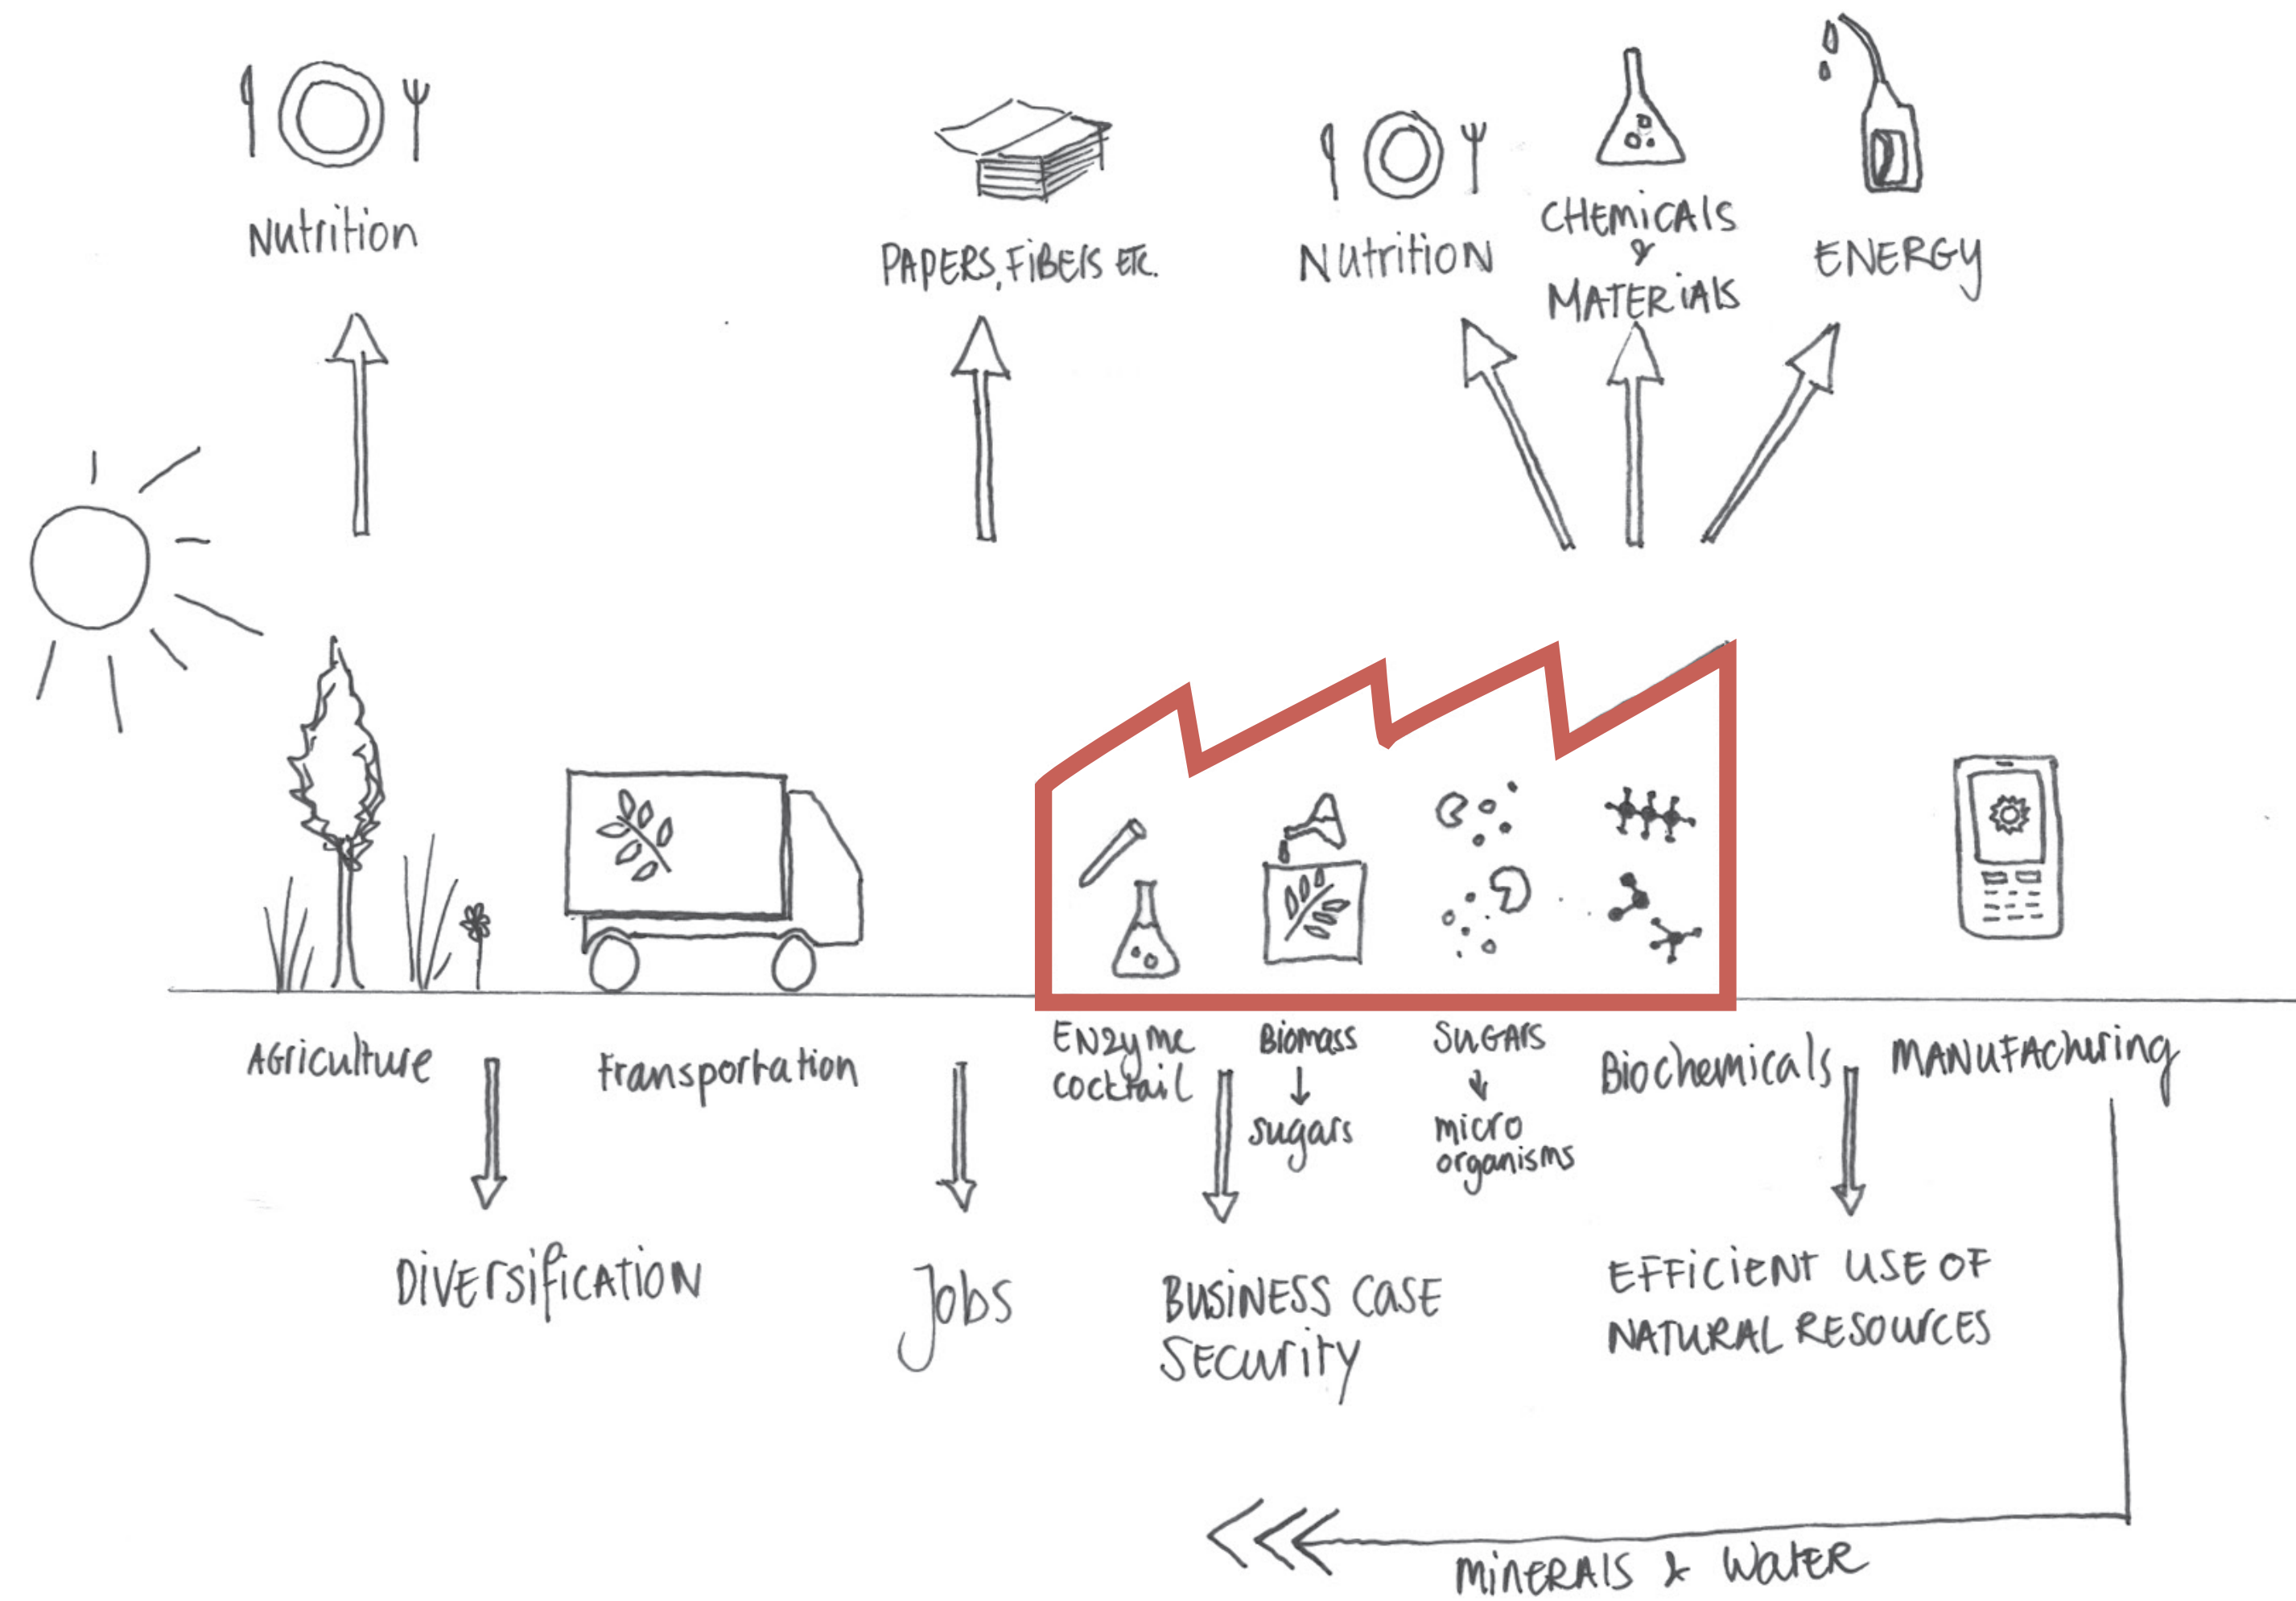 Nutrition
PAPERS, FiBErs ETC.
Nutrition
CHEMiCAlS
&
MATERiAlS
ENERGY
AGriculture
transportation
ENzyme
cocktail
Biomass
sugars
SUGArs
micro
organisms
Biochemicals
MANUFActuring
DiVERSifiCATiON
Jobs
BUSiNESS CASE
SECuriTy
EFFiCiENT USE OF
NATURAL RESOURCES
MiNERAlS & WatER